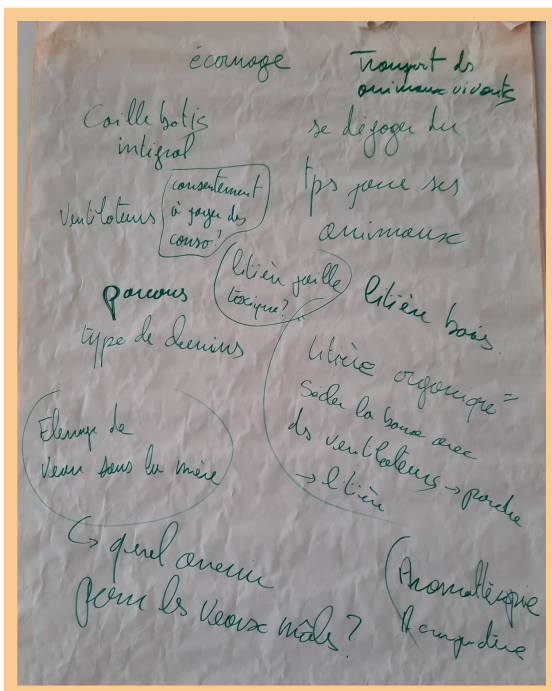 écornage
Transport des
animaux vivants
Caille botis
intégral
se dégager du
tps pour ses
animaux
Ventilateurs
consentement
à payer des
conso?
litière paille
toxique?
litière bois
parcours
type de chemins
litière organique =
Sécher la bouse avec
ds ventilateurs → poudre
→ litière
Elevage de
Veau sous la mère
↳ quel avenir
pour les veaux mâles?
Aromathérapie